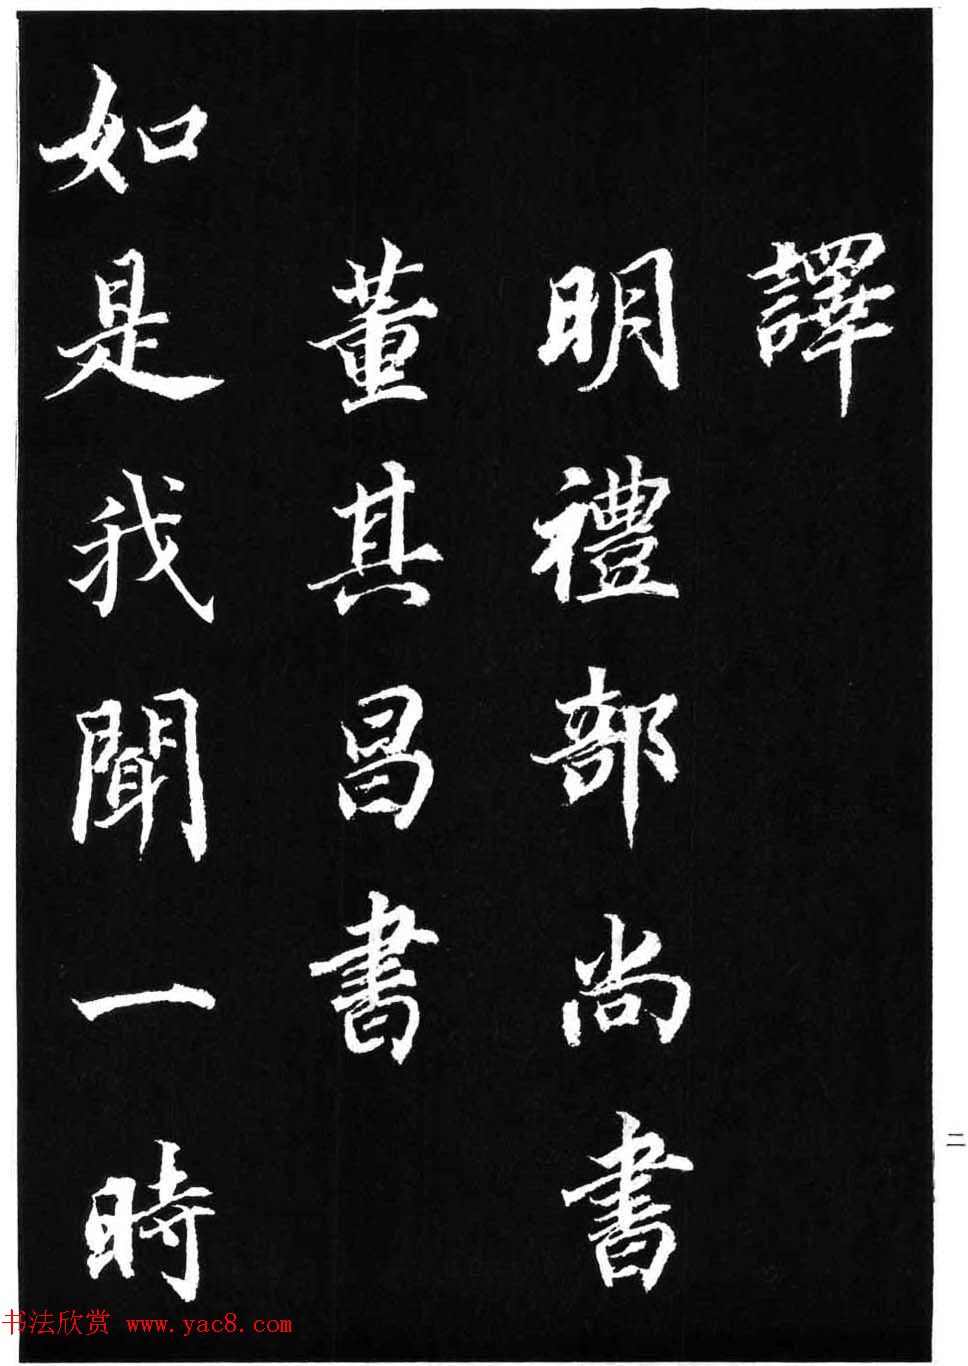 譯
明禮部尚書
董其昌書
如是我聞一時
二
书法欣赏 www.yac8.com